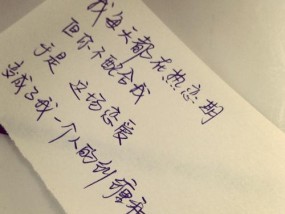 我每天都在热恋期
但你不配合我
于是 这场恋爱
变成了我一个人的